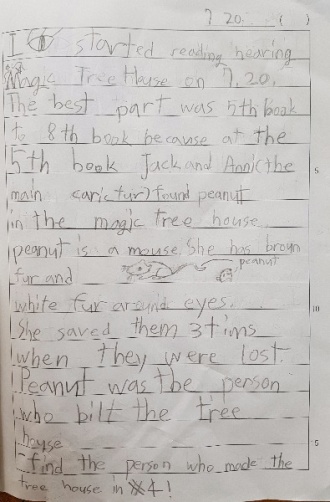 7 20. ( )
I started reading hearing
Magic Tree House on 7.20.
The best part was 5th book
to 8th book because at the
5th book Jack and Annie (the
main carictur) found peanut
in the magic tree house
peanut is a mouse. She has broun
fur and
peanut
white fur around eyes.
She saved them 3 tims
when they were lost.
Peanut was the person
who bilt the tree
house
find the person who made the
tree house in 4!
5
10
5